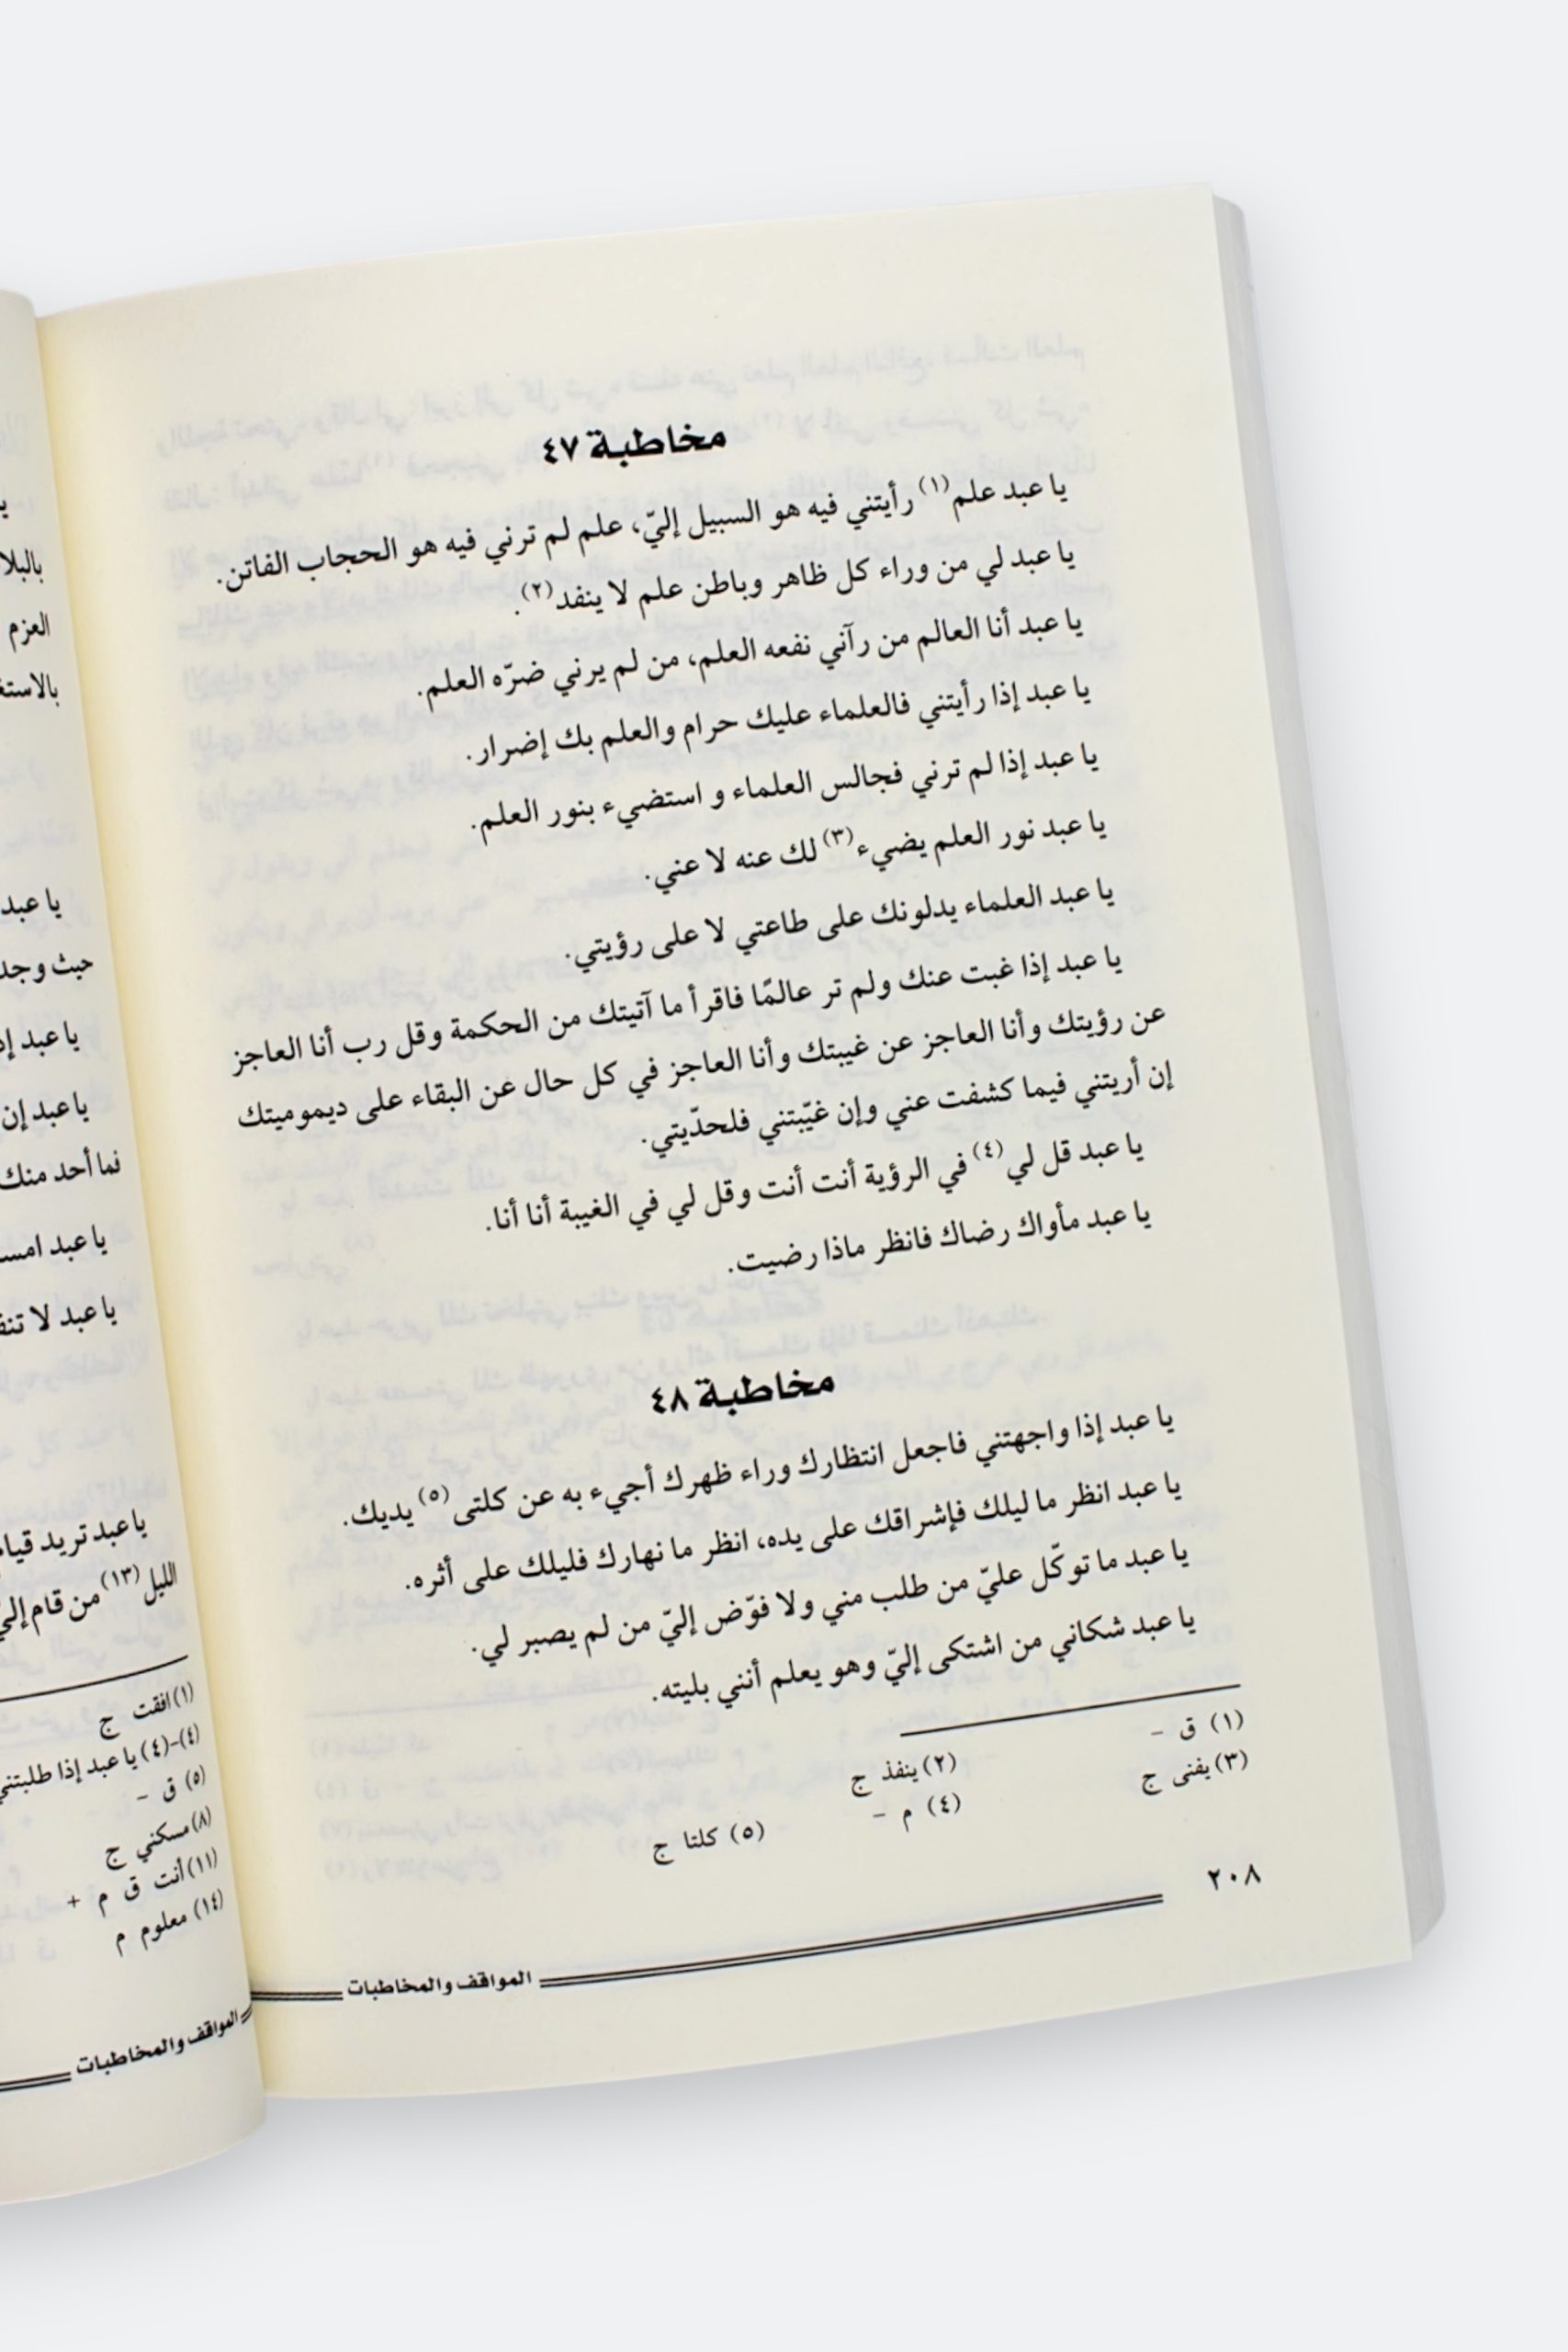 مخاطبة ٤٧
يا عبد علم(١) رأيتني فيه هو السبيل إليّ، علم لم ترني فيه هو الحجاب الفاتن.
يا عبد لي من وراء كل ظاهر وباطن علم لا ينفد(٢).
يا عبد أنا العالم من رآني نفعه العلم، من لم يرني ضرّه العلم.
يا عبد إذا رأيتني فالعلماء عليك حرام والعلم بك إضرار.
يا عبد إذا لم ترني فجالس العلماء و استضيء بنور العلم.
يا عبد نور العلم يضيء(٣) لك عنه لا عني.
يا عبد العلماء يدلونك على طاعتي لا على رؤيتي.
يا عبد إذا غبت عنك ولم تر عالمًا فاقرأ ما آتيتك من الحكمة وقل رب أنا العاجز
عن رؤيتك وأنا العاجز عن غيبتك وأنا العاجز في كل حال عن البقاء على ديموميتك
إن أريتني فيما كشفت عني وإن غيّبتني فلحدّيتي.
يا عبد قل لي(٤) في الرؤية أنت أنت وقل لي في الغيبة أنا أنا.
يا عبد مأواك رضاك فانظر ماذا رضيت.
مخاطبة ٤٨
يا عبد إذا واجهتني فاجعل انتظارك وراء ظهرك أجيء به عن كلتى(٥) يديك.
يا عبد انظر ما ليلك فإشراقك على يده، انظر ما نهارك فليلك على أثره.
يا عبد ما توكّل عليّ من طلب مني ولا فوّض إليّ من لم يصبر لي.
يا عبد شكاني من اشتكى إليّ وهو يعلم أنني بليته.
(١) ق –
(٢) ينفذ ج
(٣) يفنى ج
(٤) م –
(٥) كلتا ج
٢٠٨
المواقف والمخاطبات
العزم
يا عبد
حيث وجد
يا عبد
يا عبد إن
فما أحد منك
يا عبد
يا عبد لا
يا عبد تريد
الليل(١٣) من قام
(١) افقت ج
(٤)–(٤) يا عبد إذا طلبتني
(٥) ق –
(٨) مسكني ج
(١١) أنت ق م +
(١٤) معلوم م
المواقف والمخاطبات